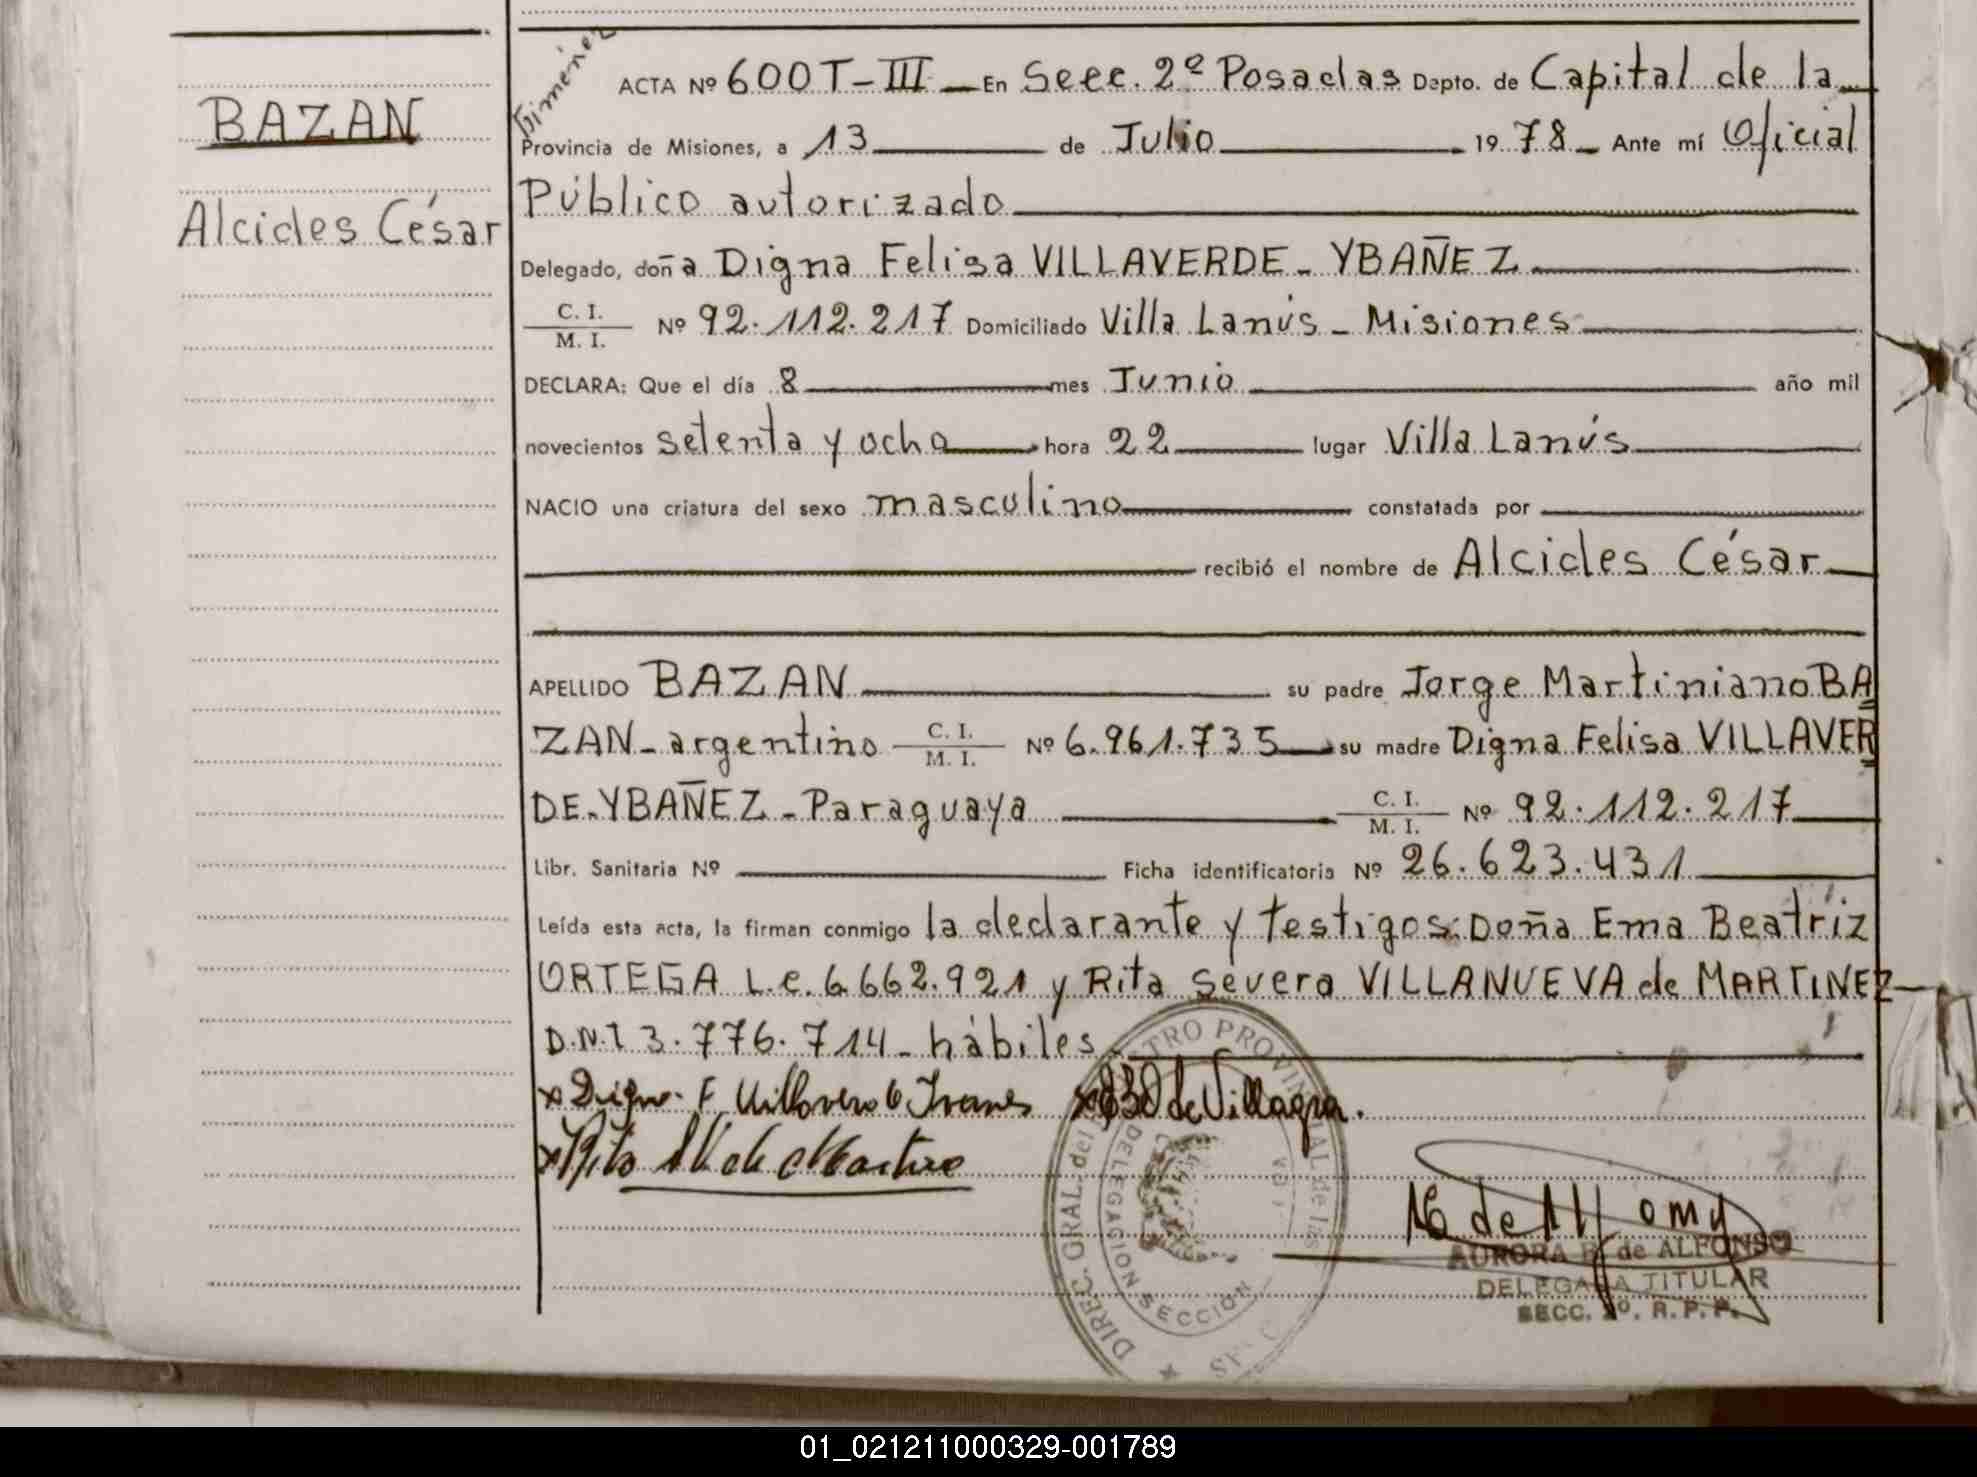 BAZAN
Alcides César
Giménez
ACTA Nº 600 T-III En Secc. 2º Posadas Depto. de Capital de la
Provincia de Misiones, a 13 de Julio 1978 Ante mí Oficial
Público autorizado
Delegado, doña Digna Felisa VILLAVERDE - YBAÑEZ
C. I.
M. I. Nº 92.112.217 Domiciliado Villa Lanús - Misiones
DECLARA: Que el día 8 mes Junio año mil
novecientos setenta y ocho hora 22 lugar Villa Lanús
NACIO una criatura del sexo masculino constatada por
recibió el nombre de Alcides César
APELLIDO BAZAN su padre Jorge Martiniano BA
ZAN - argentino C. I. M. I. Nº 6.961.735 su madre Digna Felisa VILLAVER
DE - YBAÑEZ - Paraguaya C. I. M. I. Nº 92.112.217
Libr. Sanitaria Nº Ficha identificatoria Nº 26.623.431
Leída esta acta, la firman conmigo la declarante y testigos: Doña Ema Beatriz
ORTEGA L.C. 6.662.921 y Rita Severa VILLANUEVA de MARTINEZ
D.N.I 3.776.714 - hábiles
x Digna F. x de Villagra.
x Rita de
DIREC. GRAL. del PROVINCIAL de las
DELEGACION SECCION
de
AURORA de ALFONSO
DELEGADA TITULAR
SECC. 2º. R. P. P.
01_021211000329-001789